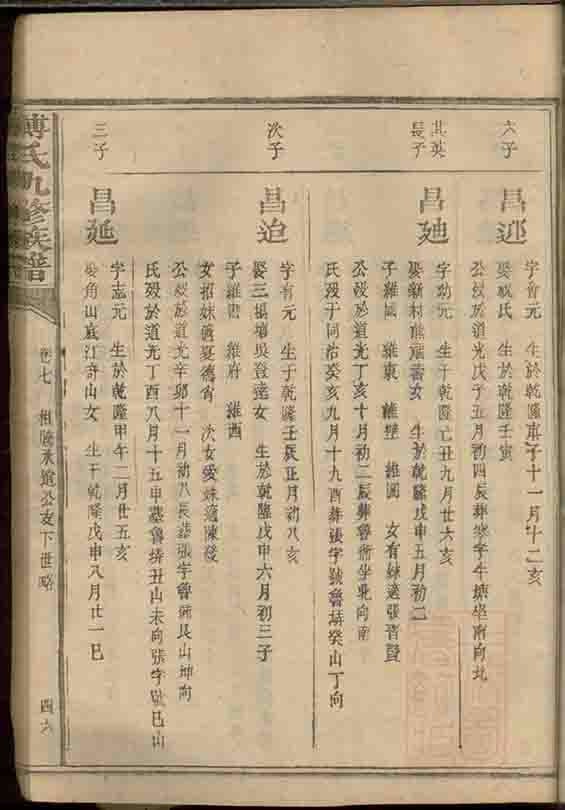 六子
昌迎
字會元 生於乾隆庚子十一月十二亥
娶戚氏 生於乾隆壬寅
公歿於道光戊子五月初四辰葬寒字牛塘坐南向北
其英
長子
昌廸
字幼元 生于乾隆亡丑九月廿六亥
娶新村熊瑞著女 生於乾隆戊申五月初二
子維國 維東 維壁 維圓 女有妹適張晋賢
公歿於道光丁亥十月初二辰葬魯術坐北向南
氏歿于同治癸亥九月十九酉葬張字號魯塝癸山丁向
次子
昌迫
字有元 生于乾隆壬辰正月初八亥
娶三堰塘吳登達女 生於乾隆戊申六月初三子
子維 維府 維酉
女招妹適夏德宵 次女愛妹適陳發
公歿於道光辛卯十一月初八辰葬張字魯術艮山坤向
氏歿於道光丁酉八月十五申塟魯塝丑山未向張字號巳山
三子
昌延
字志元 生於乾隆甲午二月廿五亥
娶角山底江奇山女 生于乾隆戊申八月廿一巳
傅氏九修族譜
卷七 相 永 公支下世略
四六